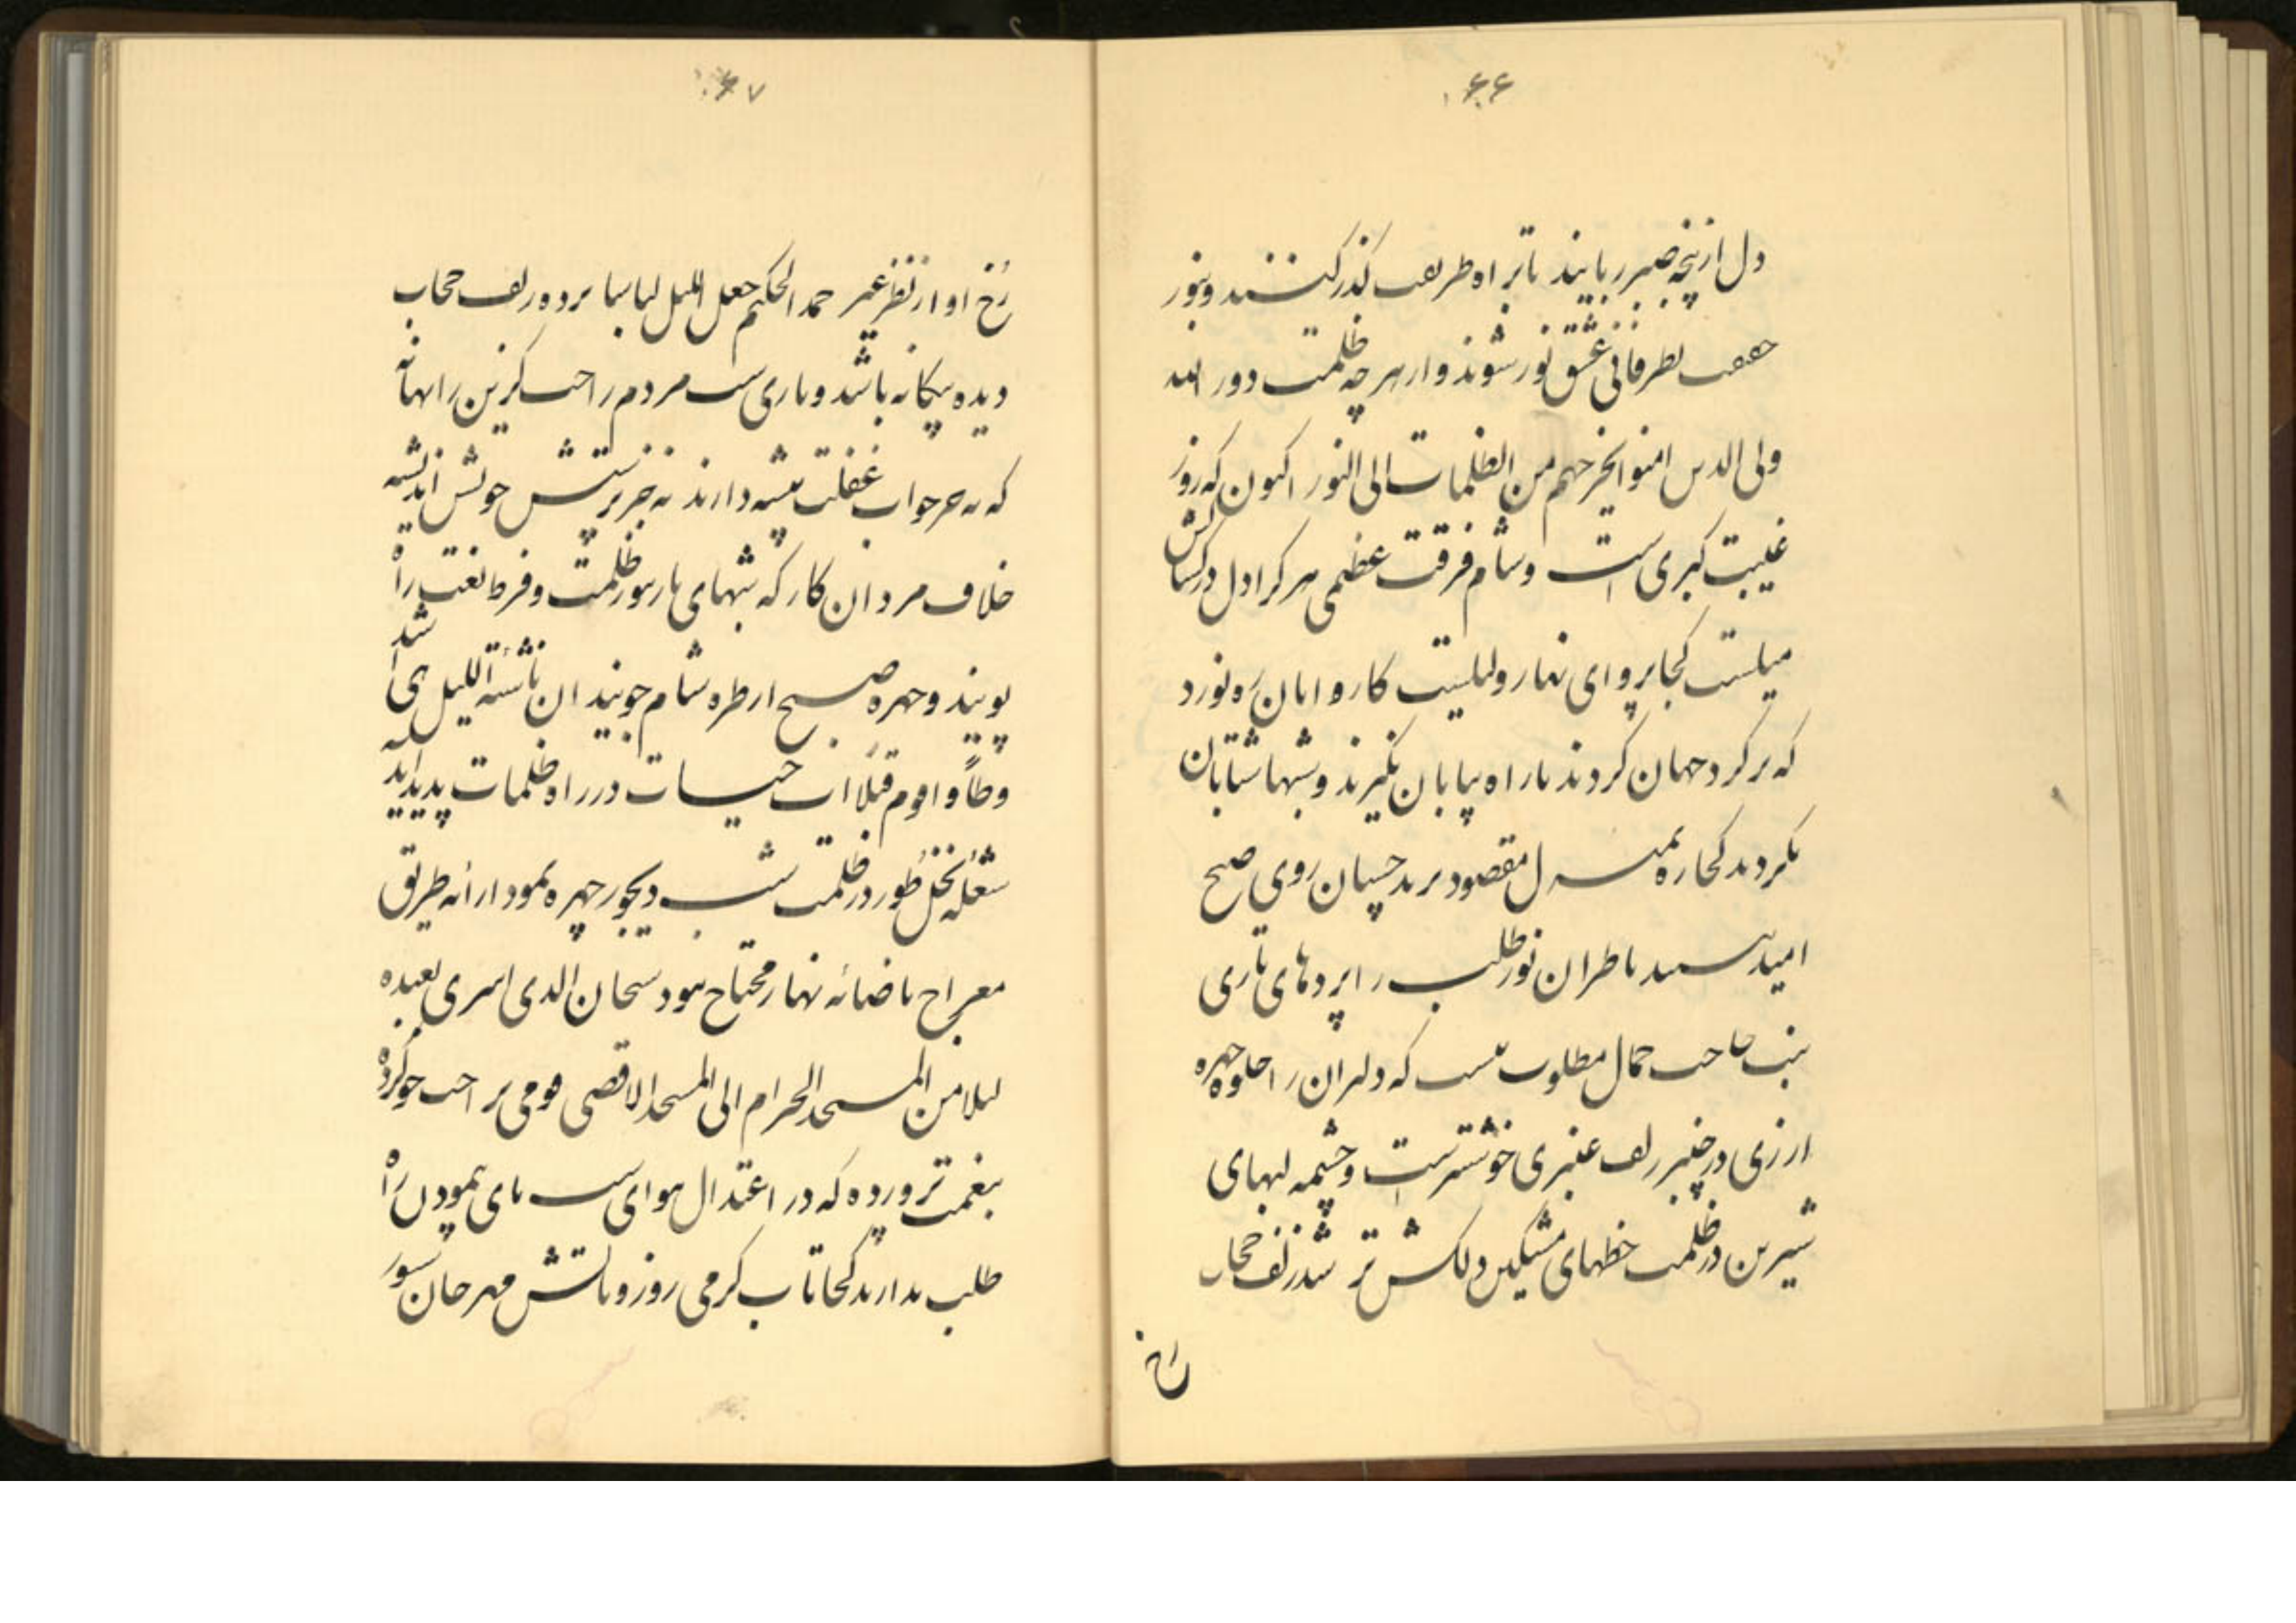 ۶۶
دل از پنجه صبر ربایند تا بر اه طریقت گذر کنند و بنور
حقیقت نظر فانی عشق نور شوند و از هر چه ظلمت دور الله
ولی الذین امنوا یخرجهم من الظلمات الی النور اکنون که روز
غیبت کبری است و شام فرقت عظمی هر کرا دل در کشاکش
میلست کجا پروای نهار و لیلست کاروانیان ره نورد
که بر کرد جهان کردند تا راه بیابان نگیرند و شبها شتابان
نکردند کجا ره بمنزل مقصود برند چسپان روی صبح
امید بینند ناظران نور طلب را پردهای تاری
شب حاجب جمال مطلوب نیست که دلبران را جلوه چهره
ارزی در چنبر زلف عنبری خوشترست و چشمه لبهای
شیرین در ظلمت خطهای مشکین دلکش تر شد زلف حجاب
رخ
۶۷
رخ او از نظر غیر حمد الحکیم جعل اللیل لباسا پرده زلف حجاب
دیده بیگانه باشد و تاری شب مردم راحت گزین را بهانه
که نه جز خواب غفلت پیشه دارند نه جز پرستش خویش اندیشه
خلاف مردان کار که شبهای تار بنور ظلمت و فرط تعب راه
پویند و چهره صبح از طره شام جویند ان ناشئة اللیل هی اشد
وطأ و اقوم قیلا آب حیات در راه ظلمات پدید آید
شعله نخل طور در ظلمت شب دیجور چهره نمود ار انه طریق
معراج با ضیائه نهار محتاج نبود سبحان الذی اسری بعبده
لیلا من المسجد الحرام الی المسجد الاقصی قومی بر احت خو کرده
بنعمت پرورده که در اعتدال هوای شب پای پیمودن راه
طلب ندارند کجا تاب کرمی روز و تابش مهر جان سوز